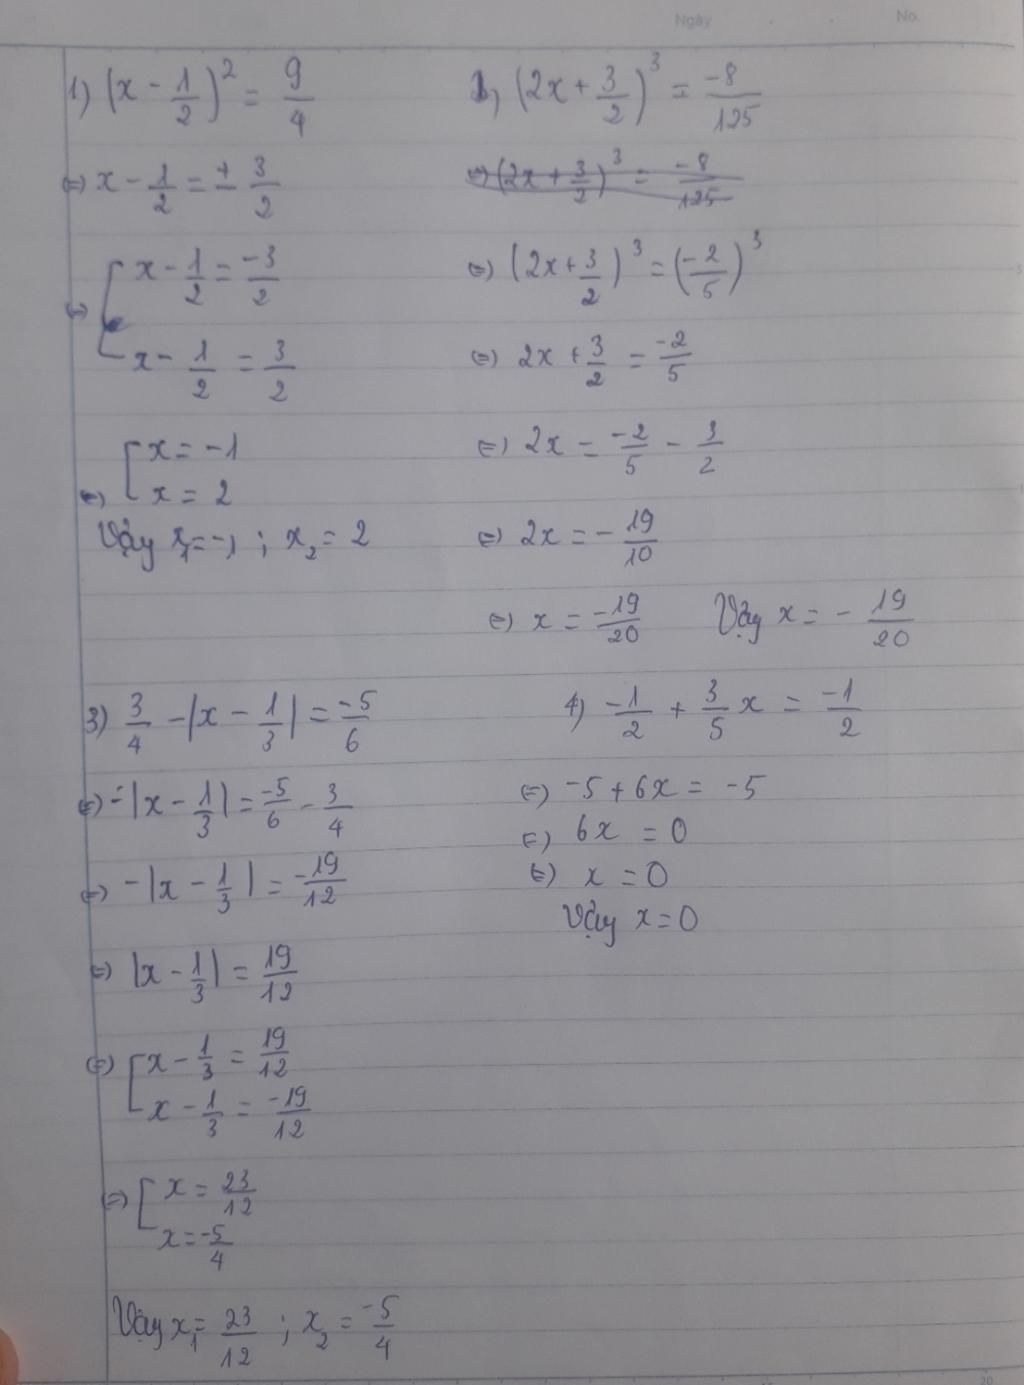 Ngày No.
1) (x - 1/2)^2 = 9/4
<=> x - 1/2 = ± 3/2
<=> [ x - 1/2 = -3/2
x - 1/2 = 3/2
<=> [ x = -1
x = 2
Vậy x₁ = -1 ; x₂ = 2
2) (2x + 3/2)^3 = -8/125
=) (2x + 3/2)^3 = -8/125
(=) (2x + 3/2)^3 = (-2/5)^3
(=) 2x + 3/2 = -2/5
(=) 2x = -2/5 - 3/2
(=) 2x = - 19/10
(=) x = -19/20 Vậy x = - 19/20
3) 3/4 - |x - 1/3| = -5/6
(=) -|x - 1/3| = -5/6 - 3/4
(=) -|x - 1/3| = -19/12
(=) |x - 1/3| = 19/12
(=) [ x - 1/3 = 19/12
x - 1/3 = -19/12
(=) [ x = 23/12
x = -5/4
Vậy x₁ = 23/12 ; x₂ = -5/4
4) -1/2 + 3/5 x = -1/2
(=) -5 + 6x = -5
(=) 6x = 0
(=) x = 0
Vậy x = 0